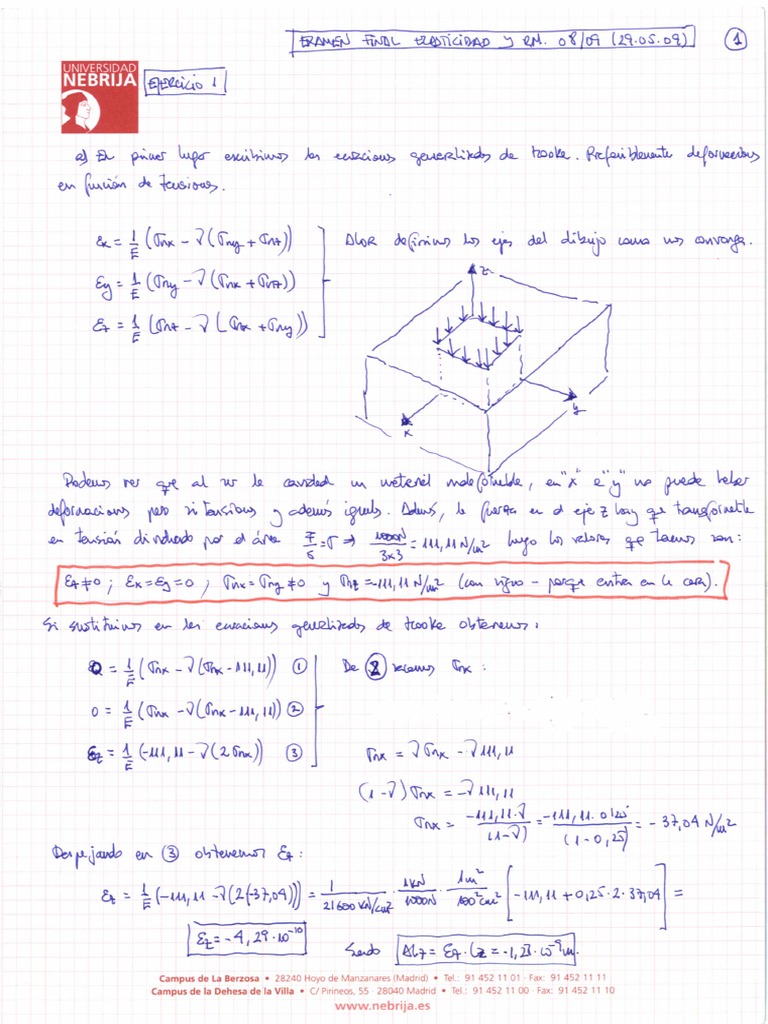 EXAMEN FINAL ELASTICIDAD y RM. 08/09 (29.05.09)
1
UNIVERSIDAD
NEBRIJA
EJERCICIO 1
a) En primer lugar escribimos las ecuaciones generalizadas de Hooke. Preferiblemente deformaciones
en función de tensiones.
εx = 1/E (σnx - ν(σny + σnz))
Ahora definimos los ejes del dibujo como nos convenga.
εy = 1/E (σny - ν(σnx + σnz))
εz = 1/E (σnz - ν(σnx + σny))
z
x
y
Podemos ver que al ser la cavidad un material indeformable, en "x" e "y" no puede haber
deformaciones pero si tensiones y además iguales. Además, la fuerza en el eje z hay que transformarla
en tensión dividiendo por el área F/S = σ ⇒ 1000N/3x3 = 111,11 N/m² luego los valores que tenemos son:
εz ≠ 0 ; εx = εy = 0 ; σnx = σny ≠ 0 y σnz = -111,11 N/m² (con signo - porque entra en la cara).
Si sustituimos en las ecuaciones generalizadas de Hooke obtenemos:
0 = 1/E (σnx - ν(σnx - 111,11)) ①
De ② sacamos σnx :
0 = 1/E (σnx - ν(σnx - 111,11)) ②
εz = 1/E (-111,11 - ν(2σnx)) ③
σnx = ν σnx - ν 111,11
(1-ν) σnx = -ν 111,11
σnx = -111,11·ν/(1-ν) = -111,11·0,25/(1-0,25) = -37,04 N/m²
Despejando en ③ obtenemos εz:
εz = 1/E (-111,11 - ν(2(-37,04))) = 1/21600 kN/cm² · 1kN/1000N · 1m²/100² cm² [-111,11 + 0,25·2·37,04] =
εz = -4,29·10⁻¹⁰
Siendo ΔLz = εz·Lz = -1,23·10⁻⁹ m.
Campus de La Berzosa • 28240 Hoyo de Manzanares (Madrid) • Tel.: 91 452 11 01 · Fax: 91 452 11 11
Campus de la Dehesa de la Villa • C/ Pirineos, 55 · 28040 Madrid • Tel.: 91 452 11 00 · Fax: 91 452 11 10
www.nebrija.es